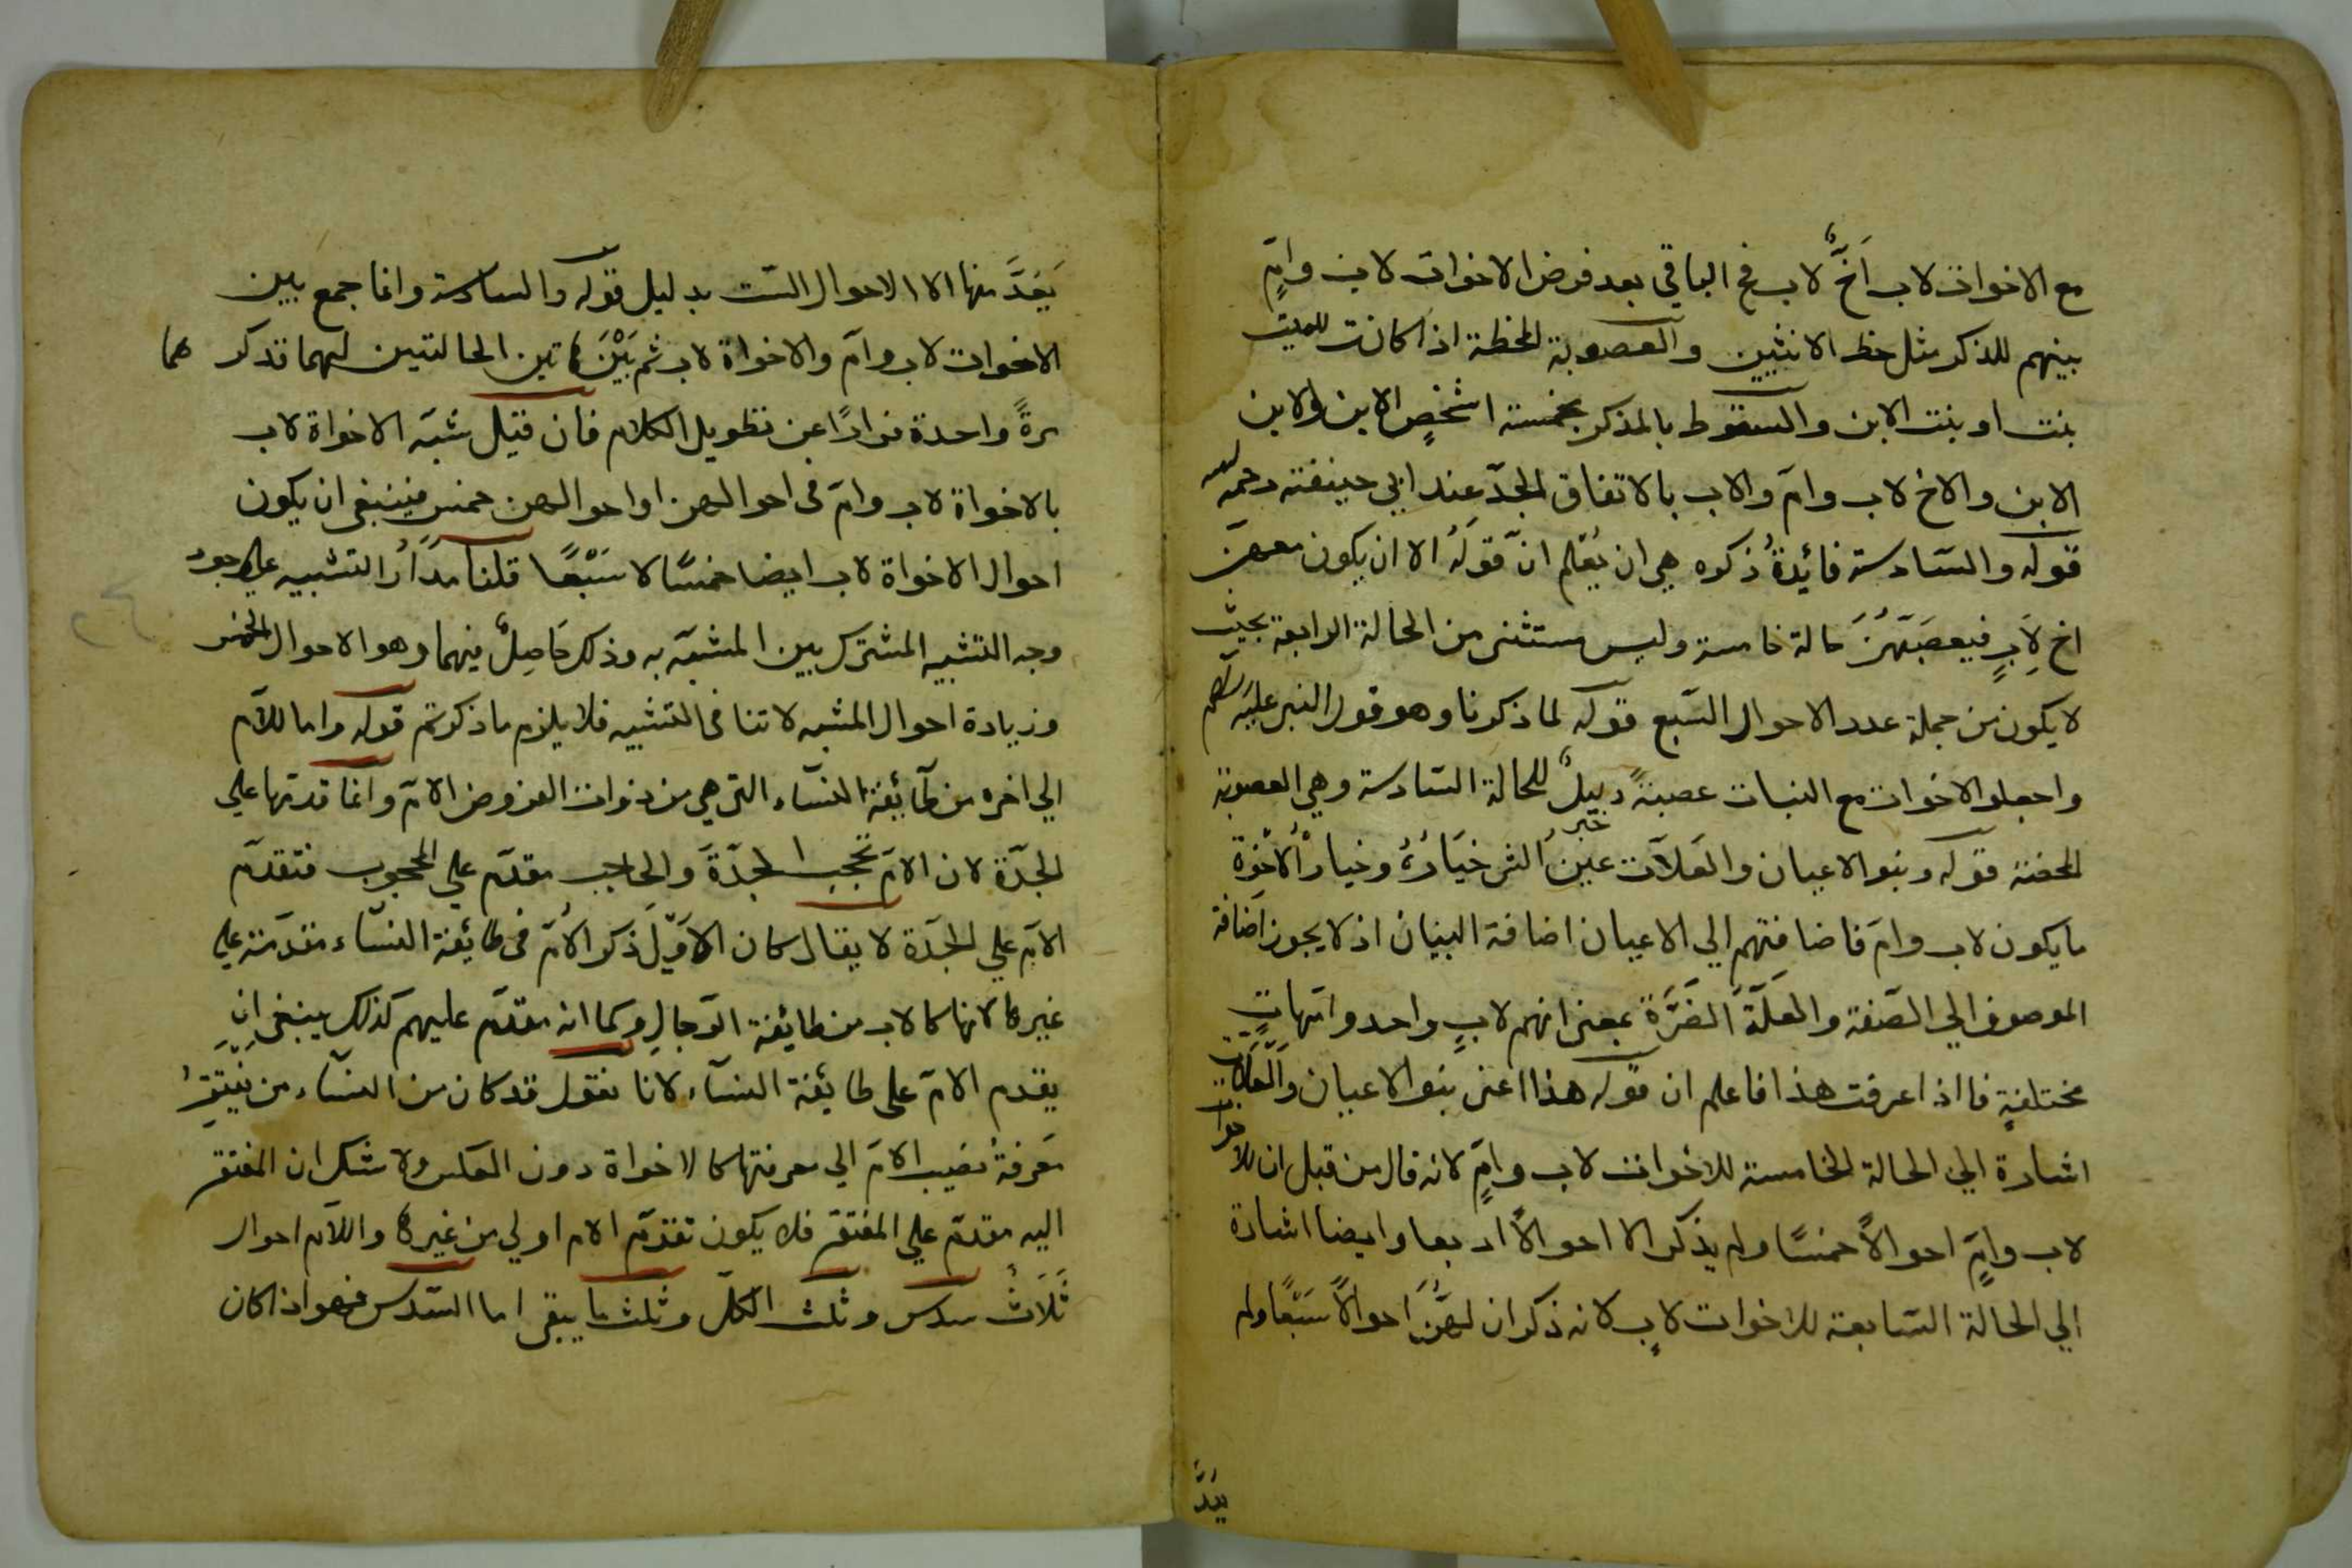 مع الاخوات لاب اَخٌ لاب فى الباقي بعد فرض الاخوات لاب وامٍّ
بينهم للذكر مثل حظ الانثيين والعصوبة المحظة اذا كانت للميت
بنت او بنت الابن والسقوط بالمذكر بخمسة اشخصٍ الابن ولابن
الابن والاخ لاب وامّ والاب بالاتفاق الجدّ عند ابي حنيفة رحمه الله
قوله والسّادسة فائدةُ ذكره هي ان يُعْلم انّ قولَهُ الا ان يكون معهنّ
اخ لِاَبٍ فيعصبَهُنَّ حالة خامسة وليس مستثنى من الحالة الرابعة بحيث
لا يكون من جملة عدد الاحوال السّبع قوله لما ذكرنا وهو قول النبي عليه السلام
واجعلوا الاخوات مع البنات عصبةً دليلٌ للحالة السّادسة وهي العصوبة
المحضة قوله وبنو الاعيان والعَلاّت عينُ الشى خيَارُهُ وخيارُ الاُخْوَة
ما يكون لاب وامّ فاضافتهم الي الاعيان اضافة البيان اذ لا يجوز اضَافة
الموصوف الي الصّفة والعلّةَ الضَرَّة بمعنى انهم لابٍ واحد وامّهاتٍ
مختلفةٍ فااذا عرفت هذا فاعلم ان قوله هذا اعنى بنو الاعيان والعَلّات
اشارة الي الحالة الخامسة للاخوات لاب وامٍّ لانه قال من قبل ان للاخوات
لاب وامٍّ احوالاً خمسًا ولم يذكر الا احوالاً اربعا وايضا اشارة
الي الحالة السّابعة للاخوات لابٍ لانه ذكر ان لهُنَّ احوالاً سَبْعًا ولم
يَعُدَّ
يَعُدَّ منها الا الاحوال الستّ بدليل قوله والسادسة وانما جمع بين
الاخوات لاب وامّ والاخواة لاب ثم بَيْنَ هاتين الحالتين لهما قد ذكرهما
مرةً واحدة فرارًا عن تطويل الكلام فان قيل شبّه الاخواة لاب
بالاخواة لاب وامّ فى احوالهن واحوالهن خمس فينبغى ان يكون
احوال الاخواة لاب ايضا خمسًا لا سَبْعًا قلنا مدَارُ التشبيه على وجود
وجه التشبيه المشترك بين المشبّه به وذلك حَاصِلٌ فيهما وهو الاحوال الخمس
وزيادة احوال المشبه لا تنافى التشبيه فلا يلزم ما ذكرتم قوله واما للاُمّ
الي اخره من طآئِفة النسآء التى هي من ذوات الفروض الامّ وانما قدمها على
الجدّة لان الامّ تحجب الجدّةَ وَالحاجب مقدّم علي المحجوب فتقدّم
الامّ علي الجدّة لا يقال كان الاَوّلي ذكر الاُمّ فى طائفة النسَّاء مقدّمة على
غيرها لانها كالاب من طائفة الرّجالِ وكما انه مقدّم عليهم كذلك ينبغى ان
يقدم الامّ على طائفة النسآء لانا نقول قد كان من النسآء من يَفْتَقِرُ
مَعرفةُ نصَيب الامّ الي معرفتها كالاخواة دون العكس ولا شك ان المفتقر
اليه مقدمّ علي المفتقر فلا يكون تقدّم الام اولي من غيرها وللاُم احوال
ثَلَاثُ سدس وثلث الكلّ وثلث ما يبقى اما السّدس فهو اذا كان